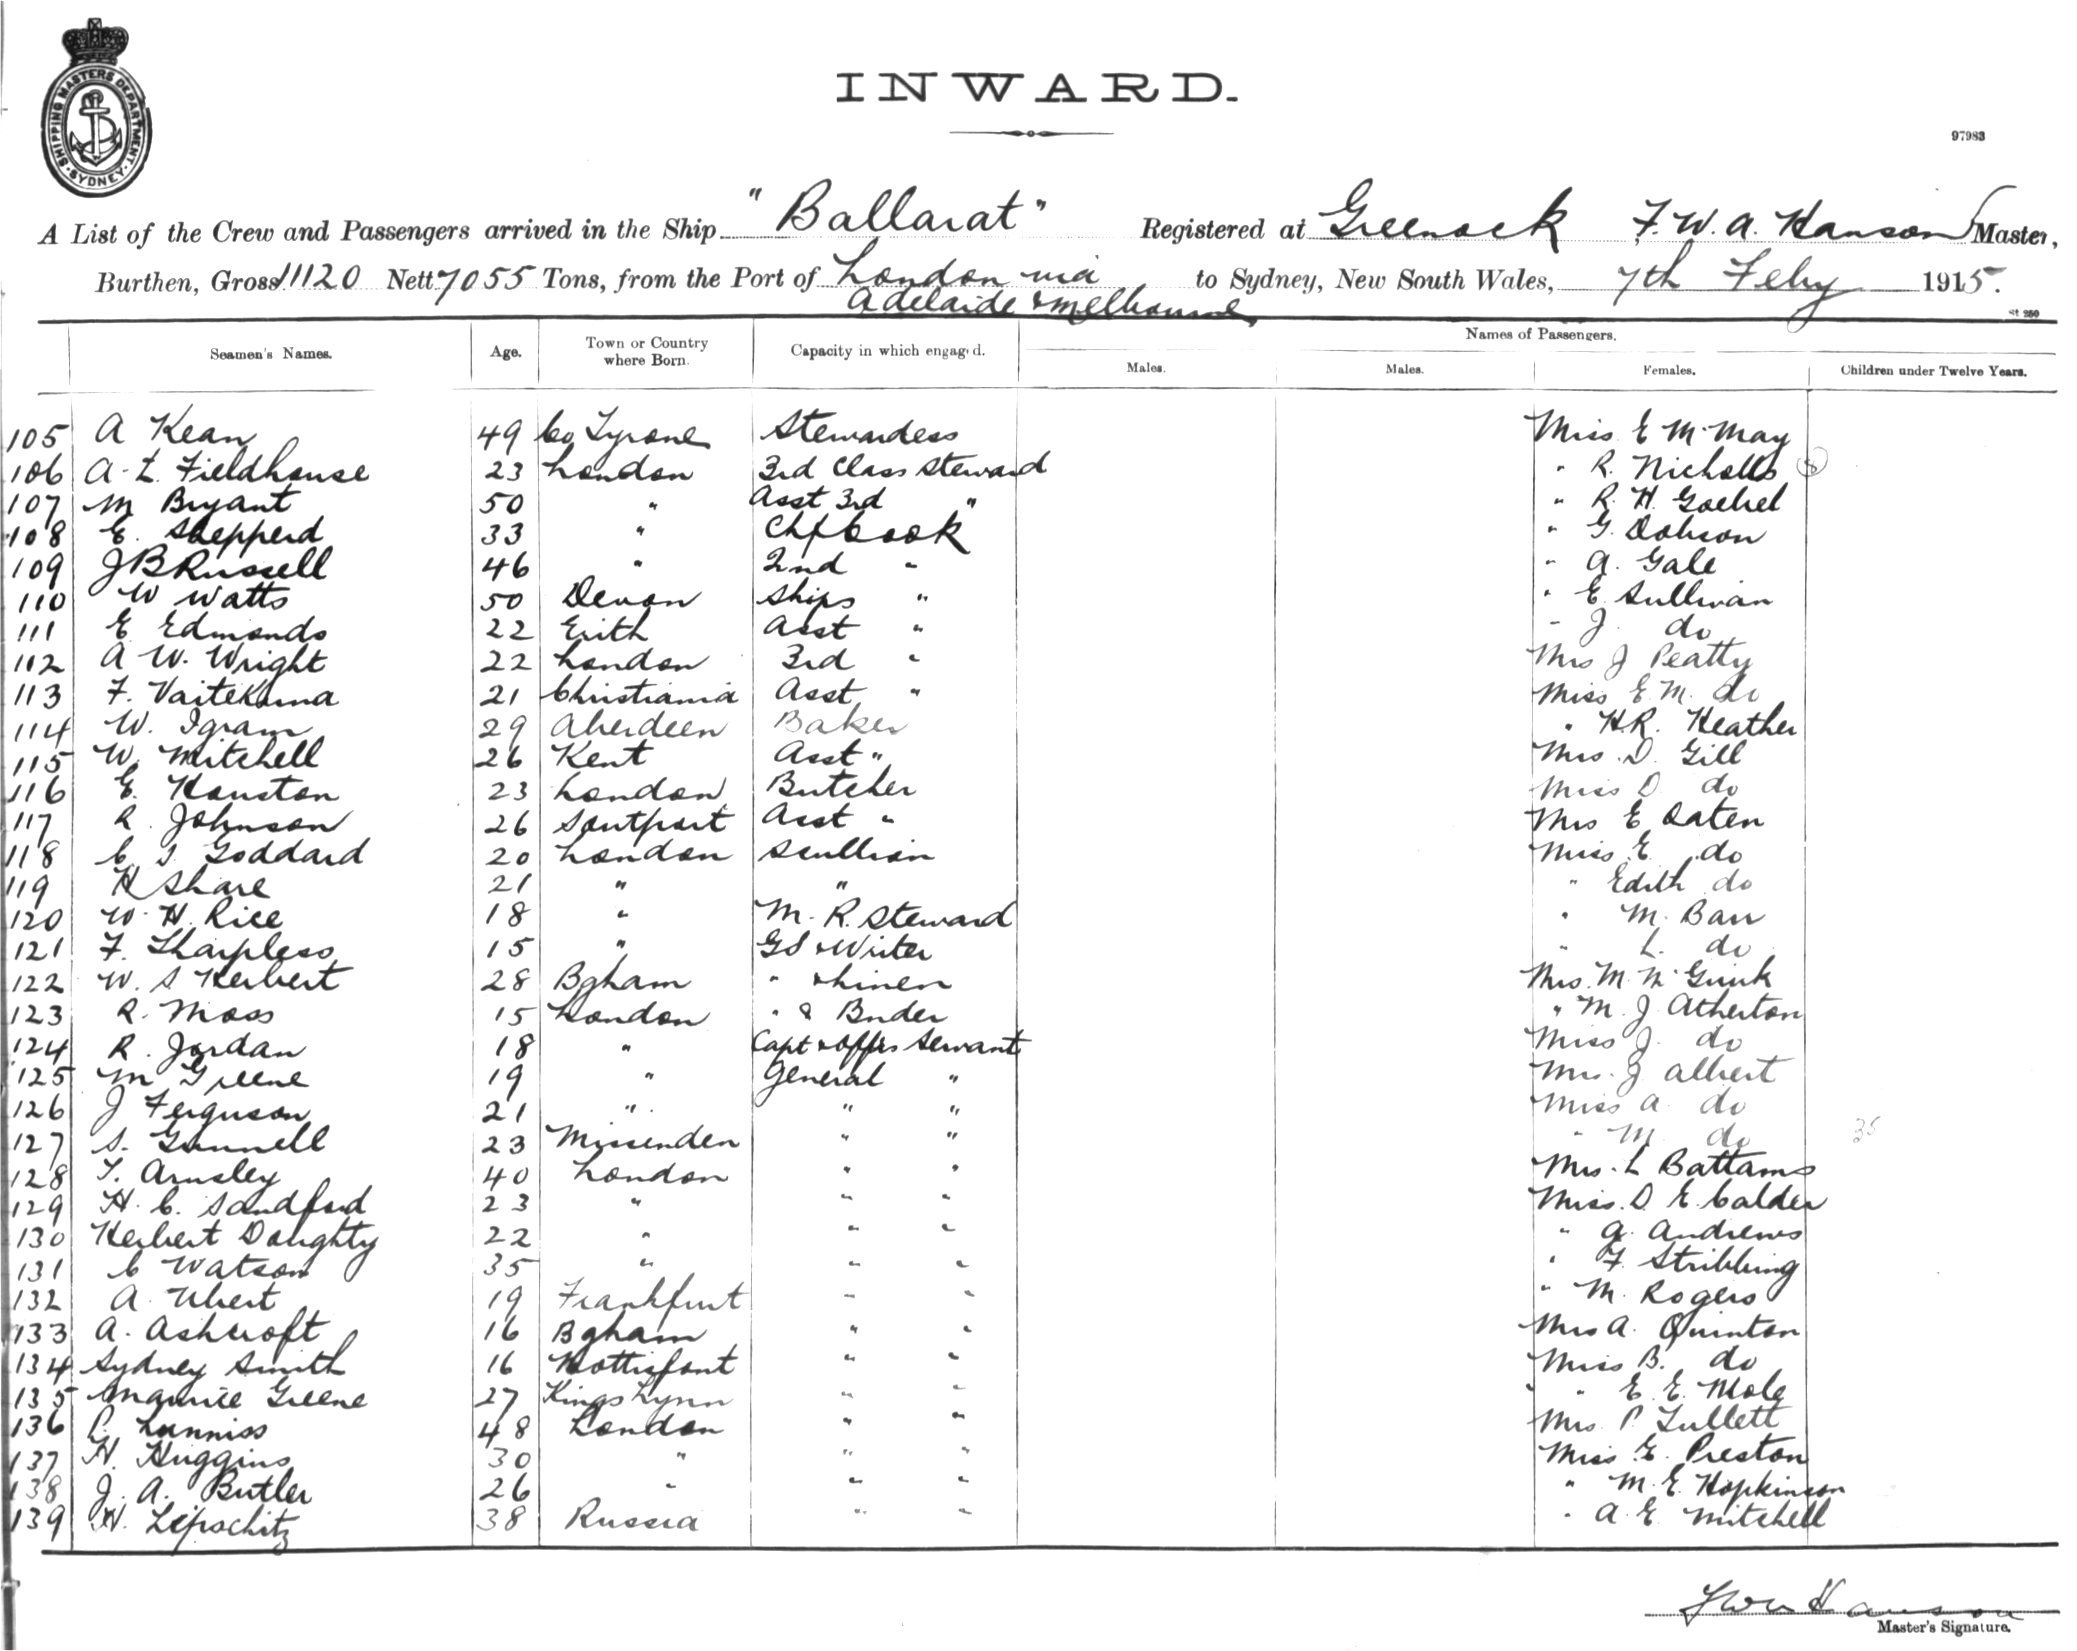 SHIPPING MASTERS DEPARTMENT. SYDNEY.
INWARD.
97983
A List of the Crew and Passengers arrived in the Ship "Ballarat" Registered at Greenock F. W. A. Hanson Master,
Burthen, Gross 11120 Nett 7055 Tons, from the Port of London via to Sydney, New South Wales, 7th Feby 1915.
Adelaide & Melbourne
St 250
Seamen's Names. Age. Town or Country where Born. Capacity in which engaged. Names of Passengers.
Males. Males. Females. Children under Twelve Years.
105 A Kean 49 Co Tyrone Stewardess Miss E McMay
106 A. L. Fieldhouse 23 London 3rd Class Steward " R. Nicholls 8
107 M Bryant 50 " Asst 3rd " " R. H. Goebel
108 E. Shepperd 33 " Chf Cook " G. Dobson
109 J B Russell 46 " 2nd " " A. Gale
110 W Watts 50 Devon Ships " " E. Sullivan
111 E Edmonds 22 Erith Asst " " J. do
112 A W. Wright 22 London 3rd " Mrs J Peatty
113 F. Vaitekuna 21 Christiania Asst " Miss E. M. do
114 W. Igram 29 Aberdeen Baker " H. R. Heather
115 W. Mitchell 26 Kent Asst " Mrs. D. Gill
116 E. Houston 23 London Butcher Miss D do
117 R. Johnson 26 Soutport Asst " Mrs E Oaten
118 C. J. Goddard 20 London Scullion Miss E. do
119 H Share 21 " " " Edith do
120 W. H. Rice 18 " M. R. Steward " M. Barr
121 F. Sharpless 15 " GS & Writer " L. do
122 W. S Herbert 28 Bgham " & Linen Mrs. M. Mc Guirk
123 R. Moss 15 London " & Bnder " M. J. Atherton
124 R. Jordan 18 " Capt & Offrs Servant Miss J. do
125 M Greene 19 " General " Mrs. J Albert
126 J Ferguson 21 " " " Miss A. do
127 S. Gunnell 23 Missenden " " " M. do 35
128 T. Arnsley 40 London " " Mrs. L Battams
129 H. C. Sandford 23 " " " Miss. D. E. Calder
130 Herbert Doughty 22 " " " " A. Andrews
131 C Watson 35 " " " " F. Stribbing
132 A. Ubert 19 Frankfurt " " " M. Rogers
133 A. Ashcroft 16 Bgham " " Mrs A. Quinton
134 Sydney Smith 16 Mottisfont " " Miss B. do
135 Maurice Greene 27 Kings Lynn " " " E. E. Mole
136 P. Lunniss 48 London " " Mrs. P. Tullett
137 H. Huggins 30 " " " Miss. E. Preston
138 J. A. Butler 26 " " " " M. E. Hopkinson
139 H. Lipschitz 38 Russia " " " A. E. Mitchell
FWA Hanson
Master's Signature.